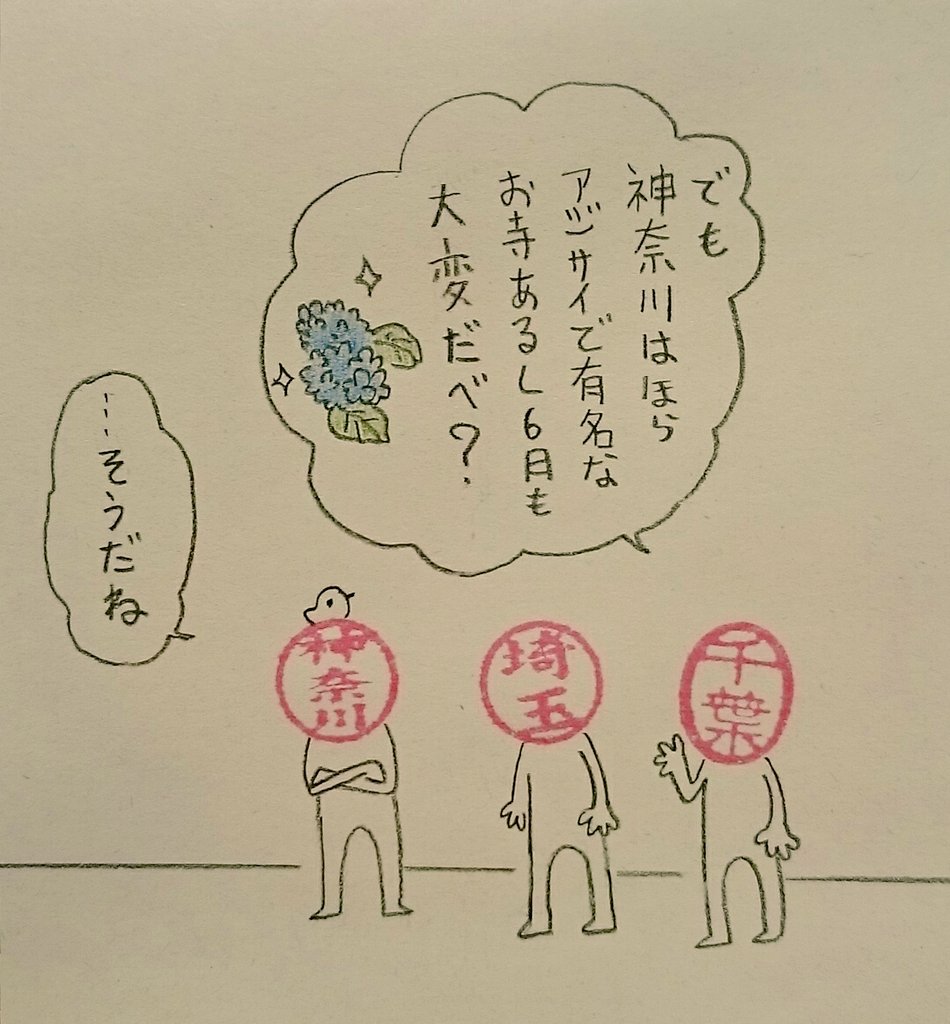 でも
神奈川はほら
アジサイで有名な
お寺あるし6月も
大変だべ?
……そうだね
神奈川
埼玉
千葉